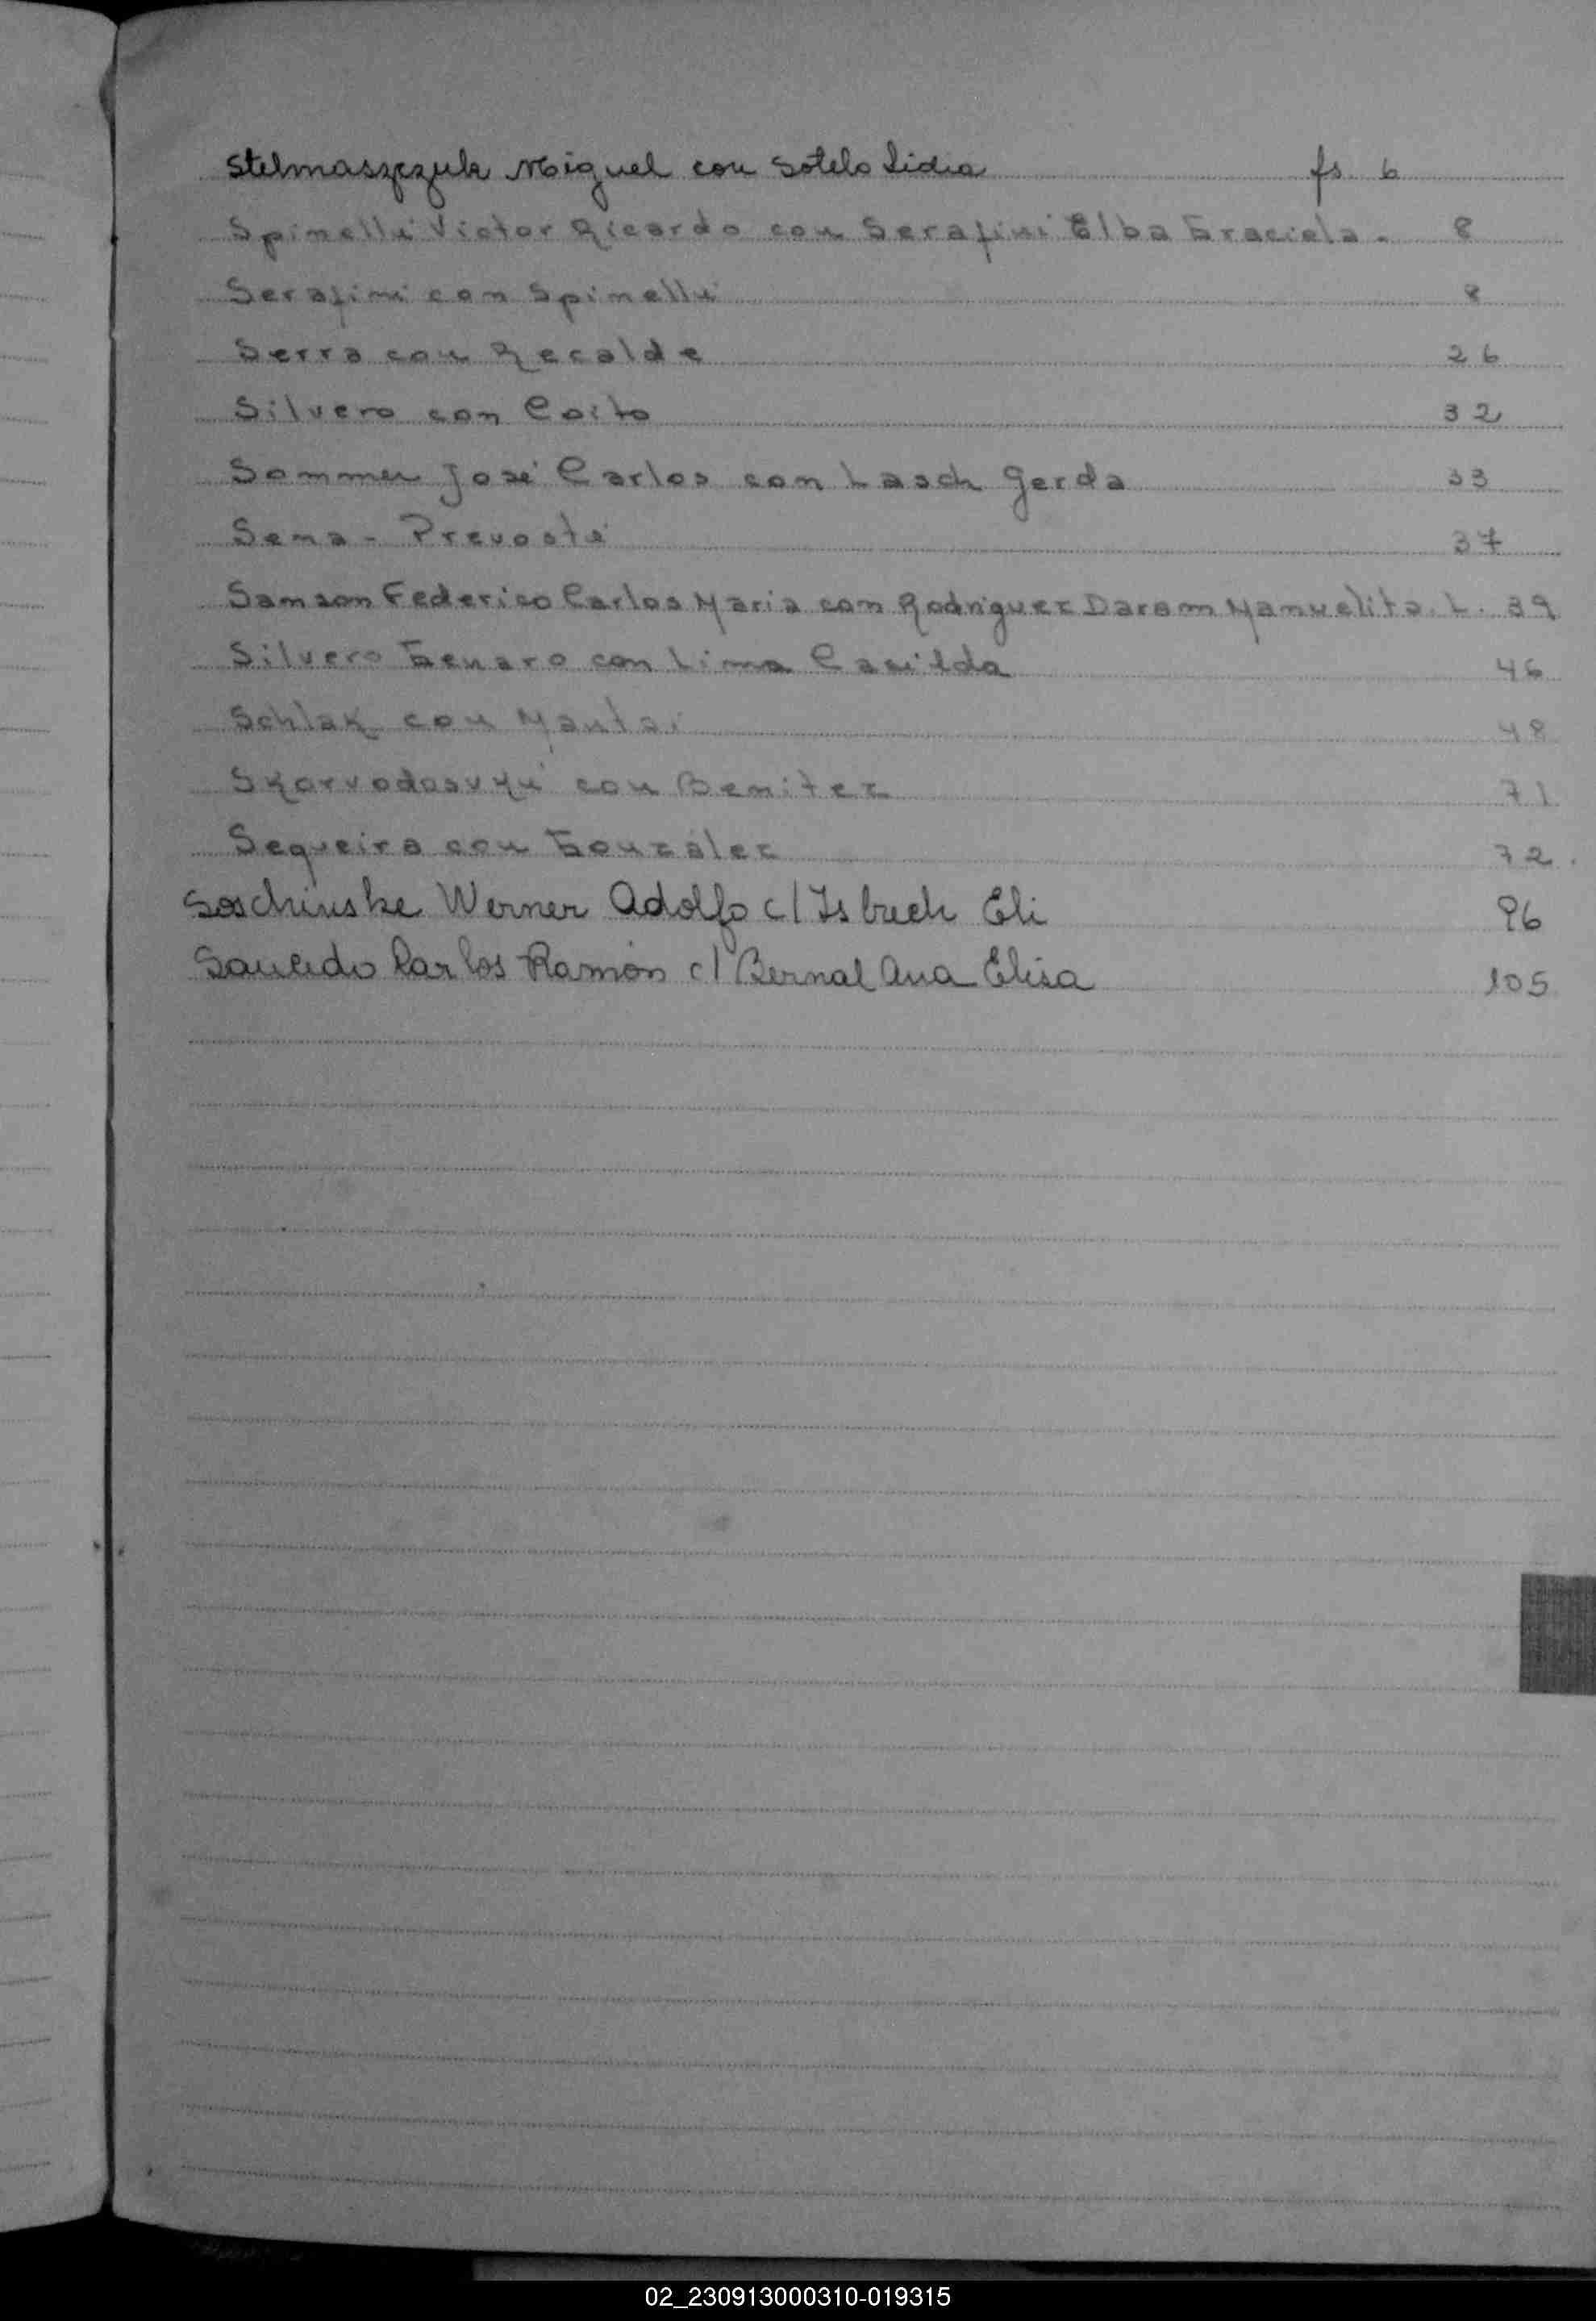 Stelmaszczuk Miguel con Sotelo Lidia fs. 6
Spinelli Victor Ricardo con Serafini Elba Graciela. 8
Serafini con Spinelli 8
Serra con Recalde 26
Silvero con Coito 32
Sommer José Carlos con Lasch Gerda 33
Sema - Prevosti 37
Samson Federico Carlos Maria con Rodriguez Daram Manuelita. L. 39
Silvero Genaro con Lima Casilda 46
Schlak con Mantai 48
con Benitez 71
Sequeira con González 72.
Soschinske Werner Adolfo c/ Isbrech Eli 96
Saucedo Carlos Ramón c/ Bernal Ana Elisa 105
02_230913000310-019315